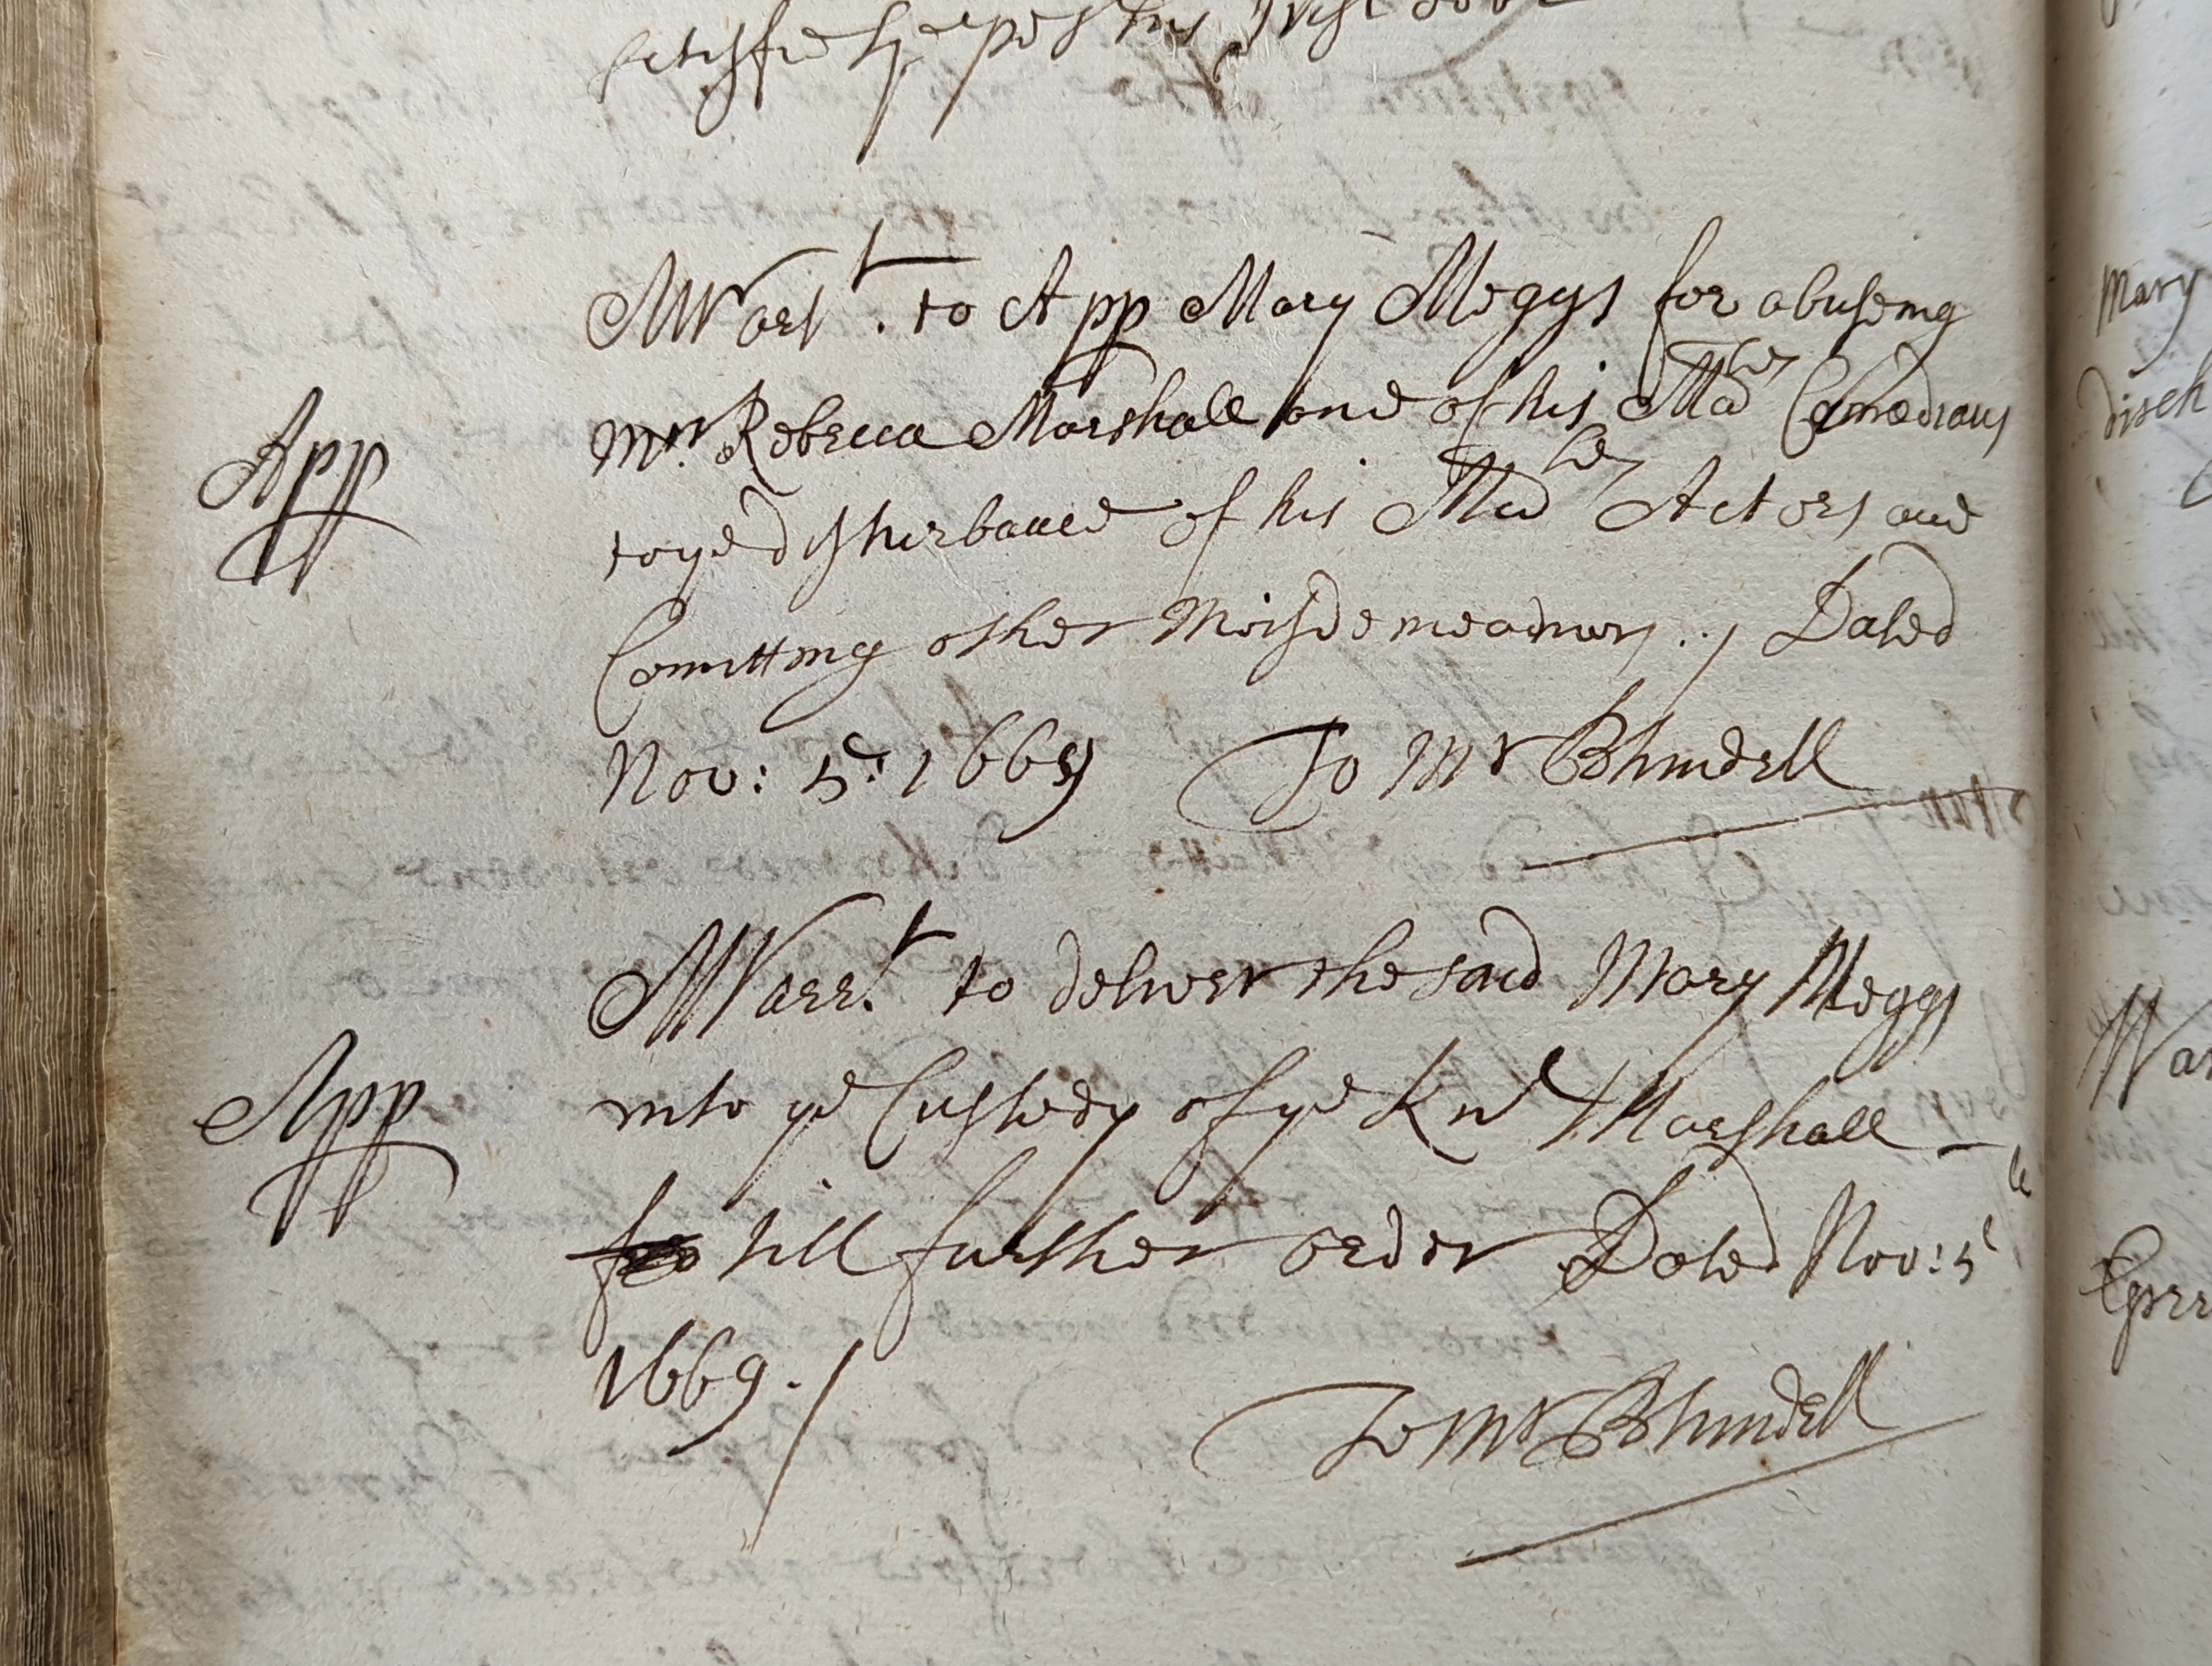 Warrt. to App Mary Meggs for abuseing
App
Mrs. Rebecca Marshall one of his Maties Comœdians
to ye disturbance of his Maties Actors and
Comitting other Misdemeadnors ./ Dated
Nov: 5th: 1669 To Mr Blundell
Warrt. to deliver the said Mary Meggs
App
into ye Custody of ye Knt Marshall
till further order Dated Nov: 5th
1669./
To Mr Blundell
Mary
disch